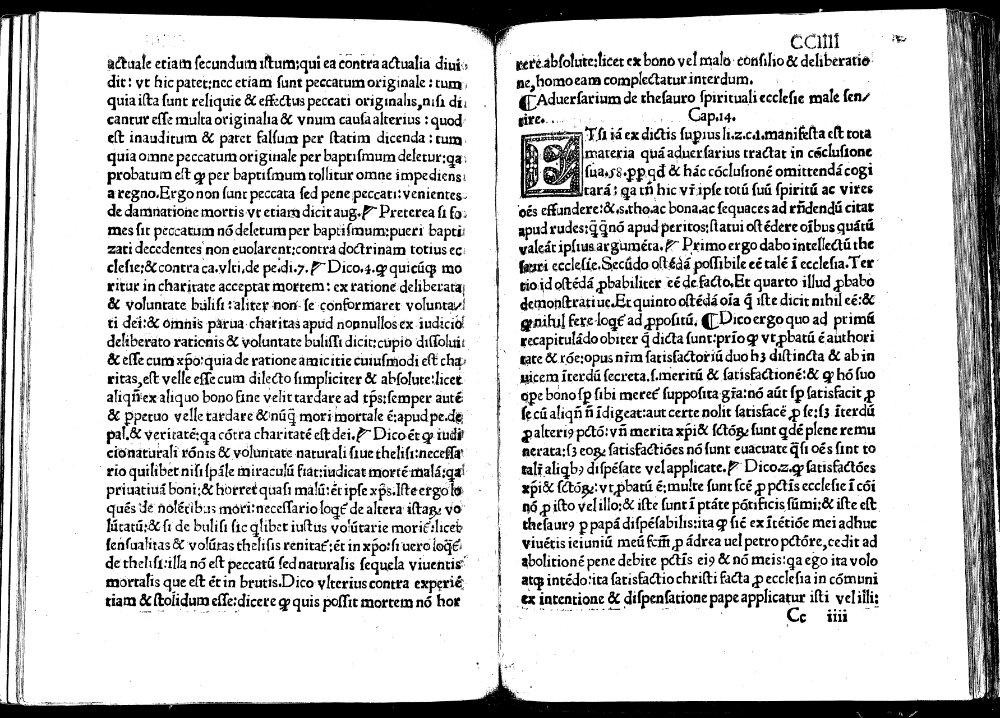 actuale etiam secundum istum:qui ea contra actualia diui
dit: vt hic patet:nec etiam sunt peccatum originale : tum
quia ista sunt reliquie & effectus peccati originalis,nisi di
cantur esse multa originalia & vnum causa alterius : quod
est inauditum & patet falsum per statim dicenda : tum
quia omne peccatum originale per baptismum deletur:qa
probatum est ꝙ per baptismum tollitur omne impediens
a regno. Ergo non sunt peccata sed pene peccati: venientes
de damnatione mortis vt etiam dicit aug. Preterea si fo
mes sit peccatum nō deletum per baptismum:pueri bapti
zati decedentes non euolarent:contra doctrinam totius ec
clesie:& contra ca.vlti, de pe.di.7. Dico.4.ꝙ quicūqꝫ mo
ritur in charitate acceptat mortem : ex ratione deliberata
& voluntate bulisi : aliter non se conformaret volunta/
ti dei:& omnis parua charitas apud nonnullos ex iudicio
deliberato rationis & voluntate bulissi dicit:cupio dissolui
& esse cum xp̄o:quia de ratione amicitie cuiusmodi est cha
ritas,est velle esse cum dilecto simpliciter & absolute:licet
aliqñ ex aliquo bono fine velit tardare ad tp̄s:semper autē
& ꝑpetuo velle tardare & nūq̄ mori mortale ē:apud pe.de
pal. & veritatē:qa cōtra charitatē est dei. Dico ēt ꝙ iudi
cio naturali rōnis & voluntate naturali siue thelisi:necessa
rio quilibet nisi sp̄ale miraculū fiat:iudicat mortē malā:qa
priuatiuā boni:& horret quasi malū:ēt ipse xp̄s. Iste ergo lo
quēs de nolētibus mori:necessario loqt̄ de altera istaꝝ vo
lūtatū:& si de bulisi sic q̄libet iustus volūtarie morit̄:licet
sensualitas & volūtas thelisis renitat̄:ēt in xp̄o:si uero loqt̄
de thelisi:illa nō est peccatū sed naturalis sequela viuentis
mortalis que est ēt in brutis. Dico vlterius contra experiē
tiam & stolidum esse:dicere ꝙ quis possit mortem nō hor
CCIIII
rere absolute:licet ex bono vel malo consilio & deliberatio
ne, homo eam complectatur interdum.
¶Aduersarium de thesauro spirituali ecclesie male sen/
tire. Cap.14.
ETsi iā ex dictis supius li.z.c.1.manifesta est tota
materia quā aduersarius tractat in cōclusione
sua.58.ꝑꝑ qd̄ & hāc cōclusionē omittendā cogi
tarā: qa tn̄ hic vr̄ ipse totū suū spiritū ac vires
oēs effundere:&.s.tho.ac bona.ac sequaces ad rn̄dendū citat
apud rudes:q̄q̄ nō apud peritos:statui ostēdere oībus quātū
valeāt ipsius argumēta. Primo ergo dabo intellectū the
sauri ecclesie.Secūdo ostēdā possibile eē talē ī ecclesia.Ter
tio id ostēdā ꝓbabiliter eē de facto.Et quarto illud ꝓbabo
demonstratiue.Et quinto ostēdā oīa q̄ iste dicit nihil eē:&
ꝙ nihil fere loqt̄ ad ꝓpositū. ¶Dico ergo quo ad primū
recapitulādo obiter q̄ dicta sunt:prīo ꝙ vt ꝓbatū ē authori
tate & rōe:opus nr̄m satisfactoriū duo hꝫ distincta & ab in
uicem īterdū secreta.s.meritū & satisfactionē:& ꝙ hō suo
ope bono sp̄ sibi meret̄ supposita gr̄a:nō aūt sp̄ satisfacit ꝑ
se cū aliqñ ñ īdigeat:aut certe nolit satisfacē ꝓ se:sꝫ īterdū
ꝓ alteriꝰ pctō:vñ merita xp̄i & sctōꝝ sunt qdē plene remu
nerata:sꝫ eoꝝ satisfactiōes nō sunt euacuate q̄si oēs sint to
talr̄ aliqbꝰ dispēsate vel applicate. Dico.2.ꝙ satisfactōes
xp̄i & sctōꝝ:vt ꝓbatū ē:multe sunt fct̄e ꝓ pctīs ecclesie ī cōi
nō ꝓ isto vel illo:& iste sunt ī ptāte pōtificis sūmi:& iste est
thesaurꝰ ꝑ papā dispēsabilis:ita ꝙ sic̄ ex ītētiōe mei adhuc
viuētis ieiuniū meū fc̄m ꝓ ādrea uel petro pctōre,cedit ad
abolitionē pene debite pctīs eiꝰ & nō meis:qa ego ita volo
atqꝫ intēdo:ita satisfactio christi facta ꝓ ecclesia in cōmuni
ex intentione & dispensatione pape applicatur isti vel illi:
Cc iiii